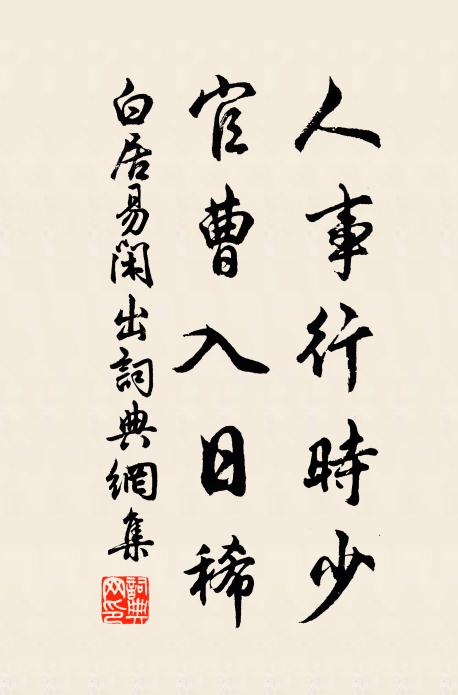 人事行時少
官曹入日稀
白居易閑出詞典網集
詞典
网印